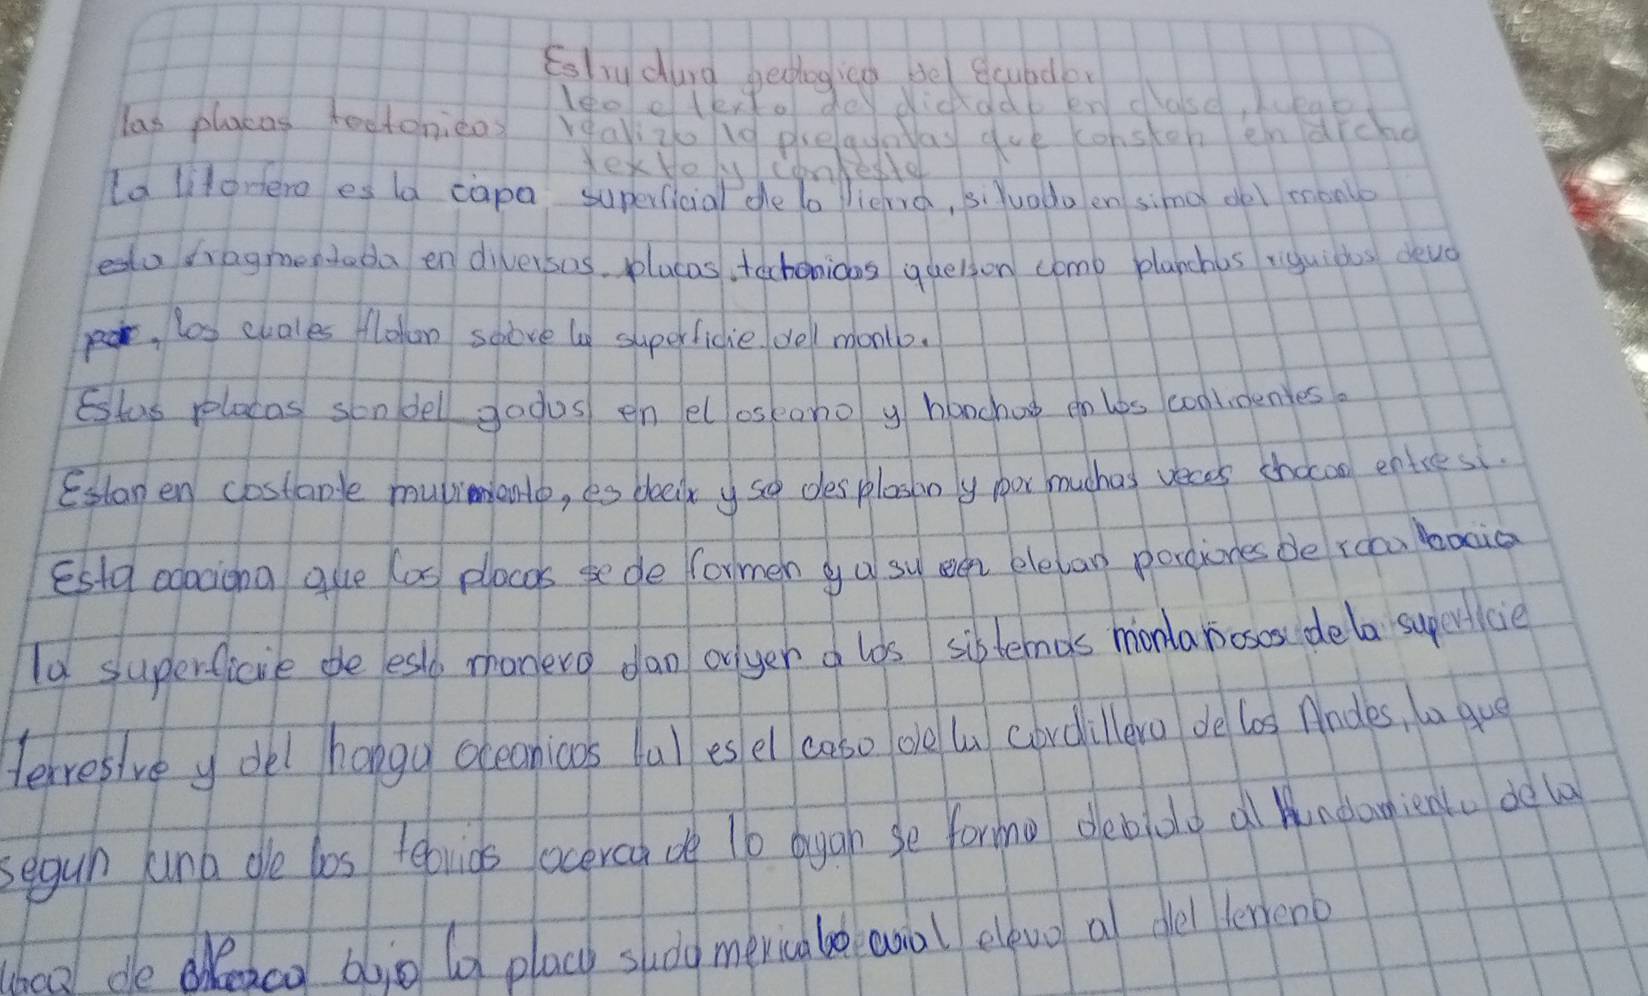 Estructura geologica del Ecuador
leo el texto del dictado en clase, luego
las placas tectonicas realizo la preguntas que consten en dicho
texto y conteste
La litosfero es la capa superficial de la tierra, situada en sima del manto
esta fragmentada en diversas placas tectonicas que son como planchas riguidas deuo
por, los cuales flotan sobre la superficie del manto.
Estas placas son delgadas en el oseano y hanchas en los continentes.
Estan en costante muvimiento, es decir y se desplasan y por muchas veces chocan entre si.
Esta ocaciona que las placas se deformen y a su elevan porciones de roca hacia
la superficie de esta manera dan origen a los sistemas montañosos de la superficie
terrestre y del hongu oceanicos tal es el caso de la cordillera de los Andes, la que
segun una de los teorias acerca de lo oygan se formo debido al hundamiento de la
de bajo la placa sudamericana lo cual elevo al del terreno